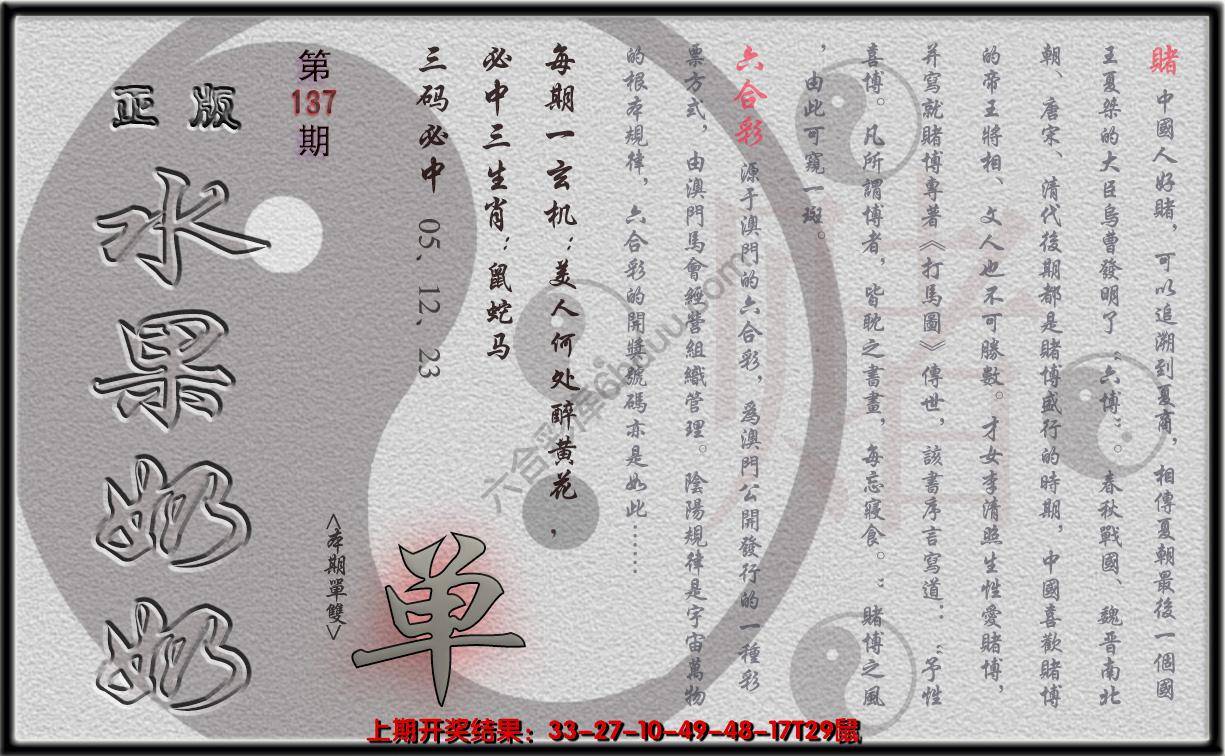 賭 中國人好賭，可以追溯到夏商，相傳夏朝最後一個國
王夏桀的大臣烏曹發明了“六博”。春秋戰國、魏晋南北
朝、唐宋、清代後期都是賭博盛行的時期，中國喜歡賭博
的帝王將相、文人也不可勝數。才女李清照生性愛賭博，
并寫就賭博專著《打馬圖》傳世，該書序言寫道：“予性
喜博。凡所謂博者，皆耽之書畫，每忘寢食。”賭博之風
，由此可窺一斑。
六合彩 源于澳門的六合彩，爲澳門公開發行的一種彩
票方式，由澳門馬會經營組織管理。陰陽規律是宇宙萬物
的根本規律，六合彩的開獎號碼亦是如此……
每期一玄机：美人何处醉黄花，
必中三生肖：鼠蛇马
三码必中 05、12、23
第
137
期
正版
水果奶奶
<本期單雙>
单
上期开奖结果：33-27-10-49-48-17T29鼠